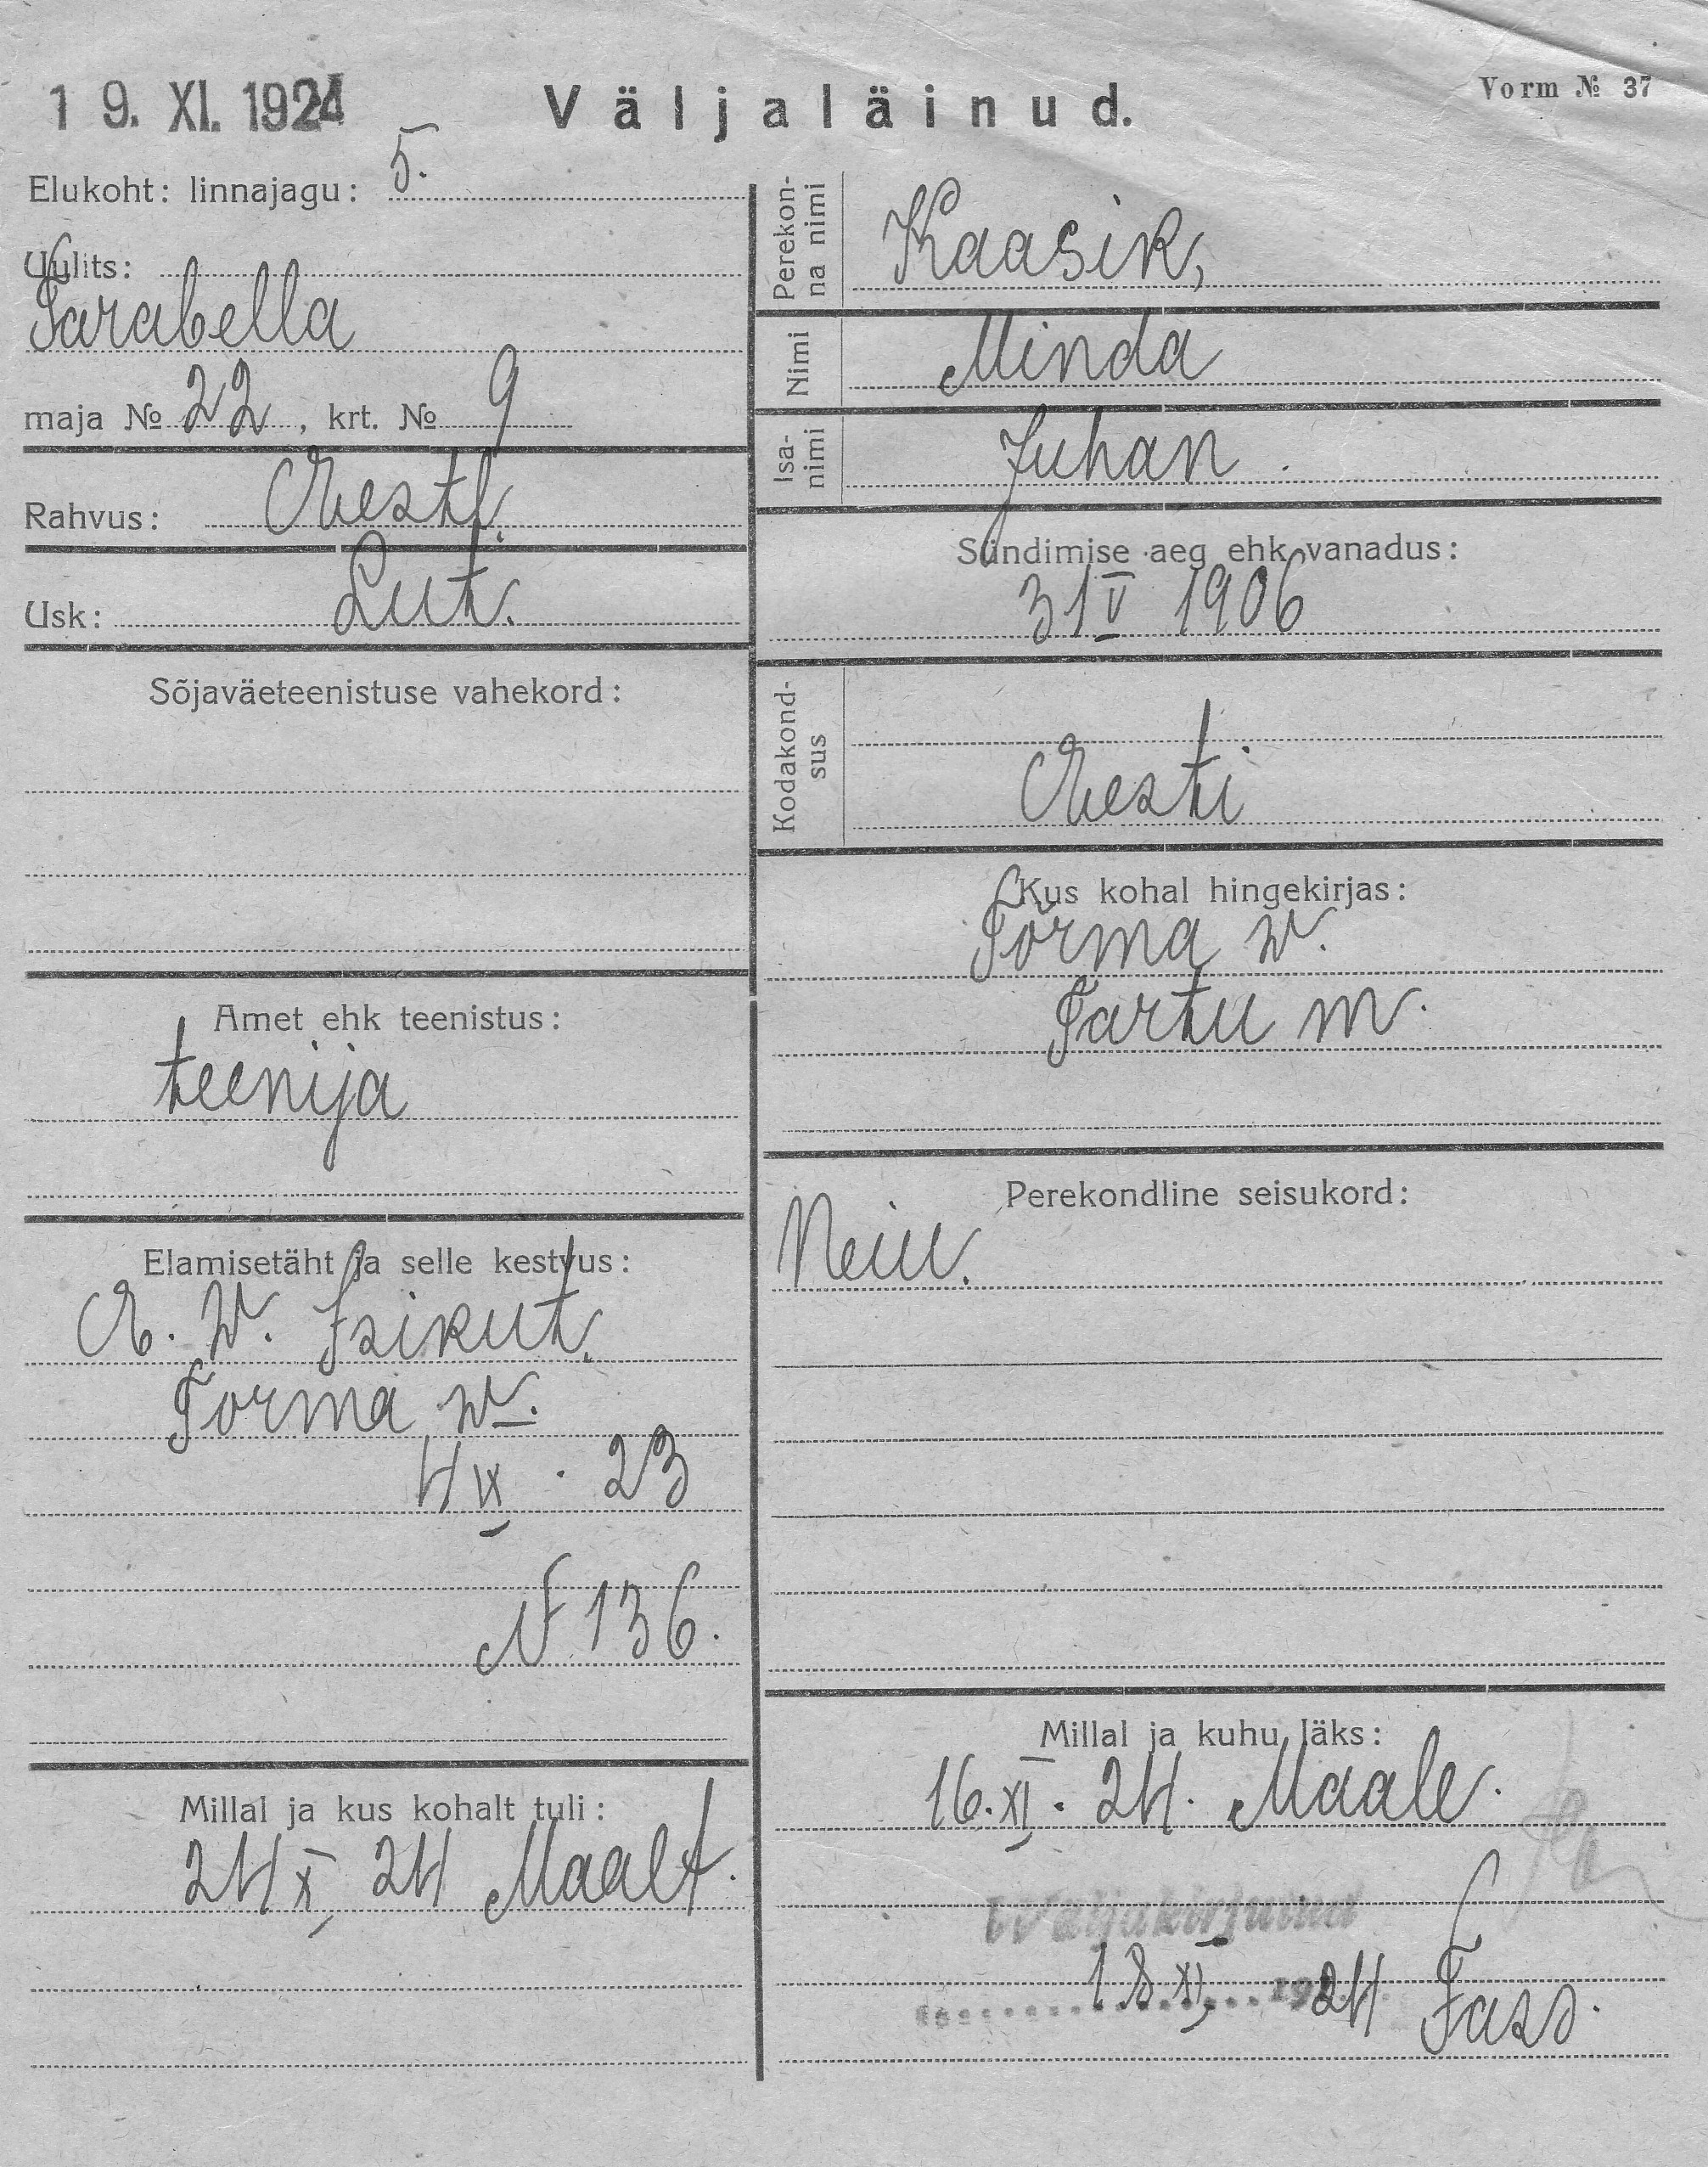 19. XI. 1924
Väljaläinud.
Vorm № 37
Elukoht: linnajagu: 5.
Uulits:
Tarabella
maja № 22, krt. № 9
Rahvus: Eesti.
Usk: Lut.
Sõjaväeteenistuse vahekord:
Amet ehk teenistus:
teenija
Elamisetäht ja selle kestvus:
E. W. Isikut.
Torma w.
4 IX . 23
№ 136.
Millal ja kus kohalt tuli:
24 X 24 Maalt.
Perekon-
na nimi
Kaasik,
Nimi
Minda
Isa-
nimi
Juhan.
Sündimise aeg ehk vanadus:
31 V 1906
Kodakond-
sus
Eesti
Kus kohal hingekirjas:
Torma w.
Tartu m.
Perekondline seisukord:
Neiu.
Millal ja kuhu läks:
16. XI. 24. Maale.
Wäljakirjutud
18 XI 1924